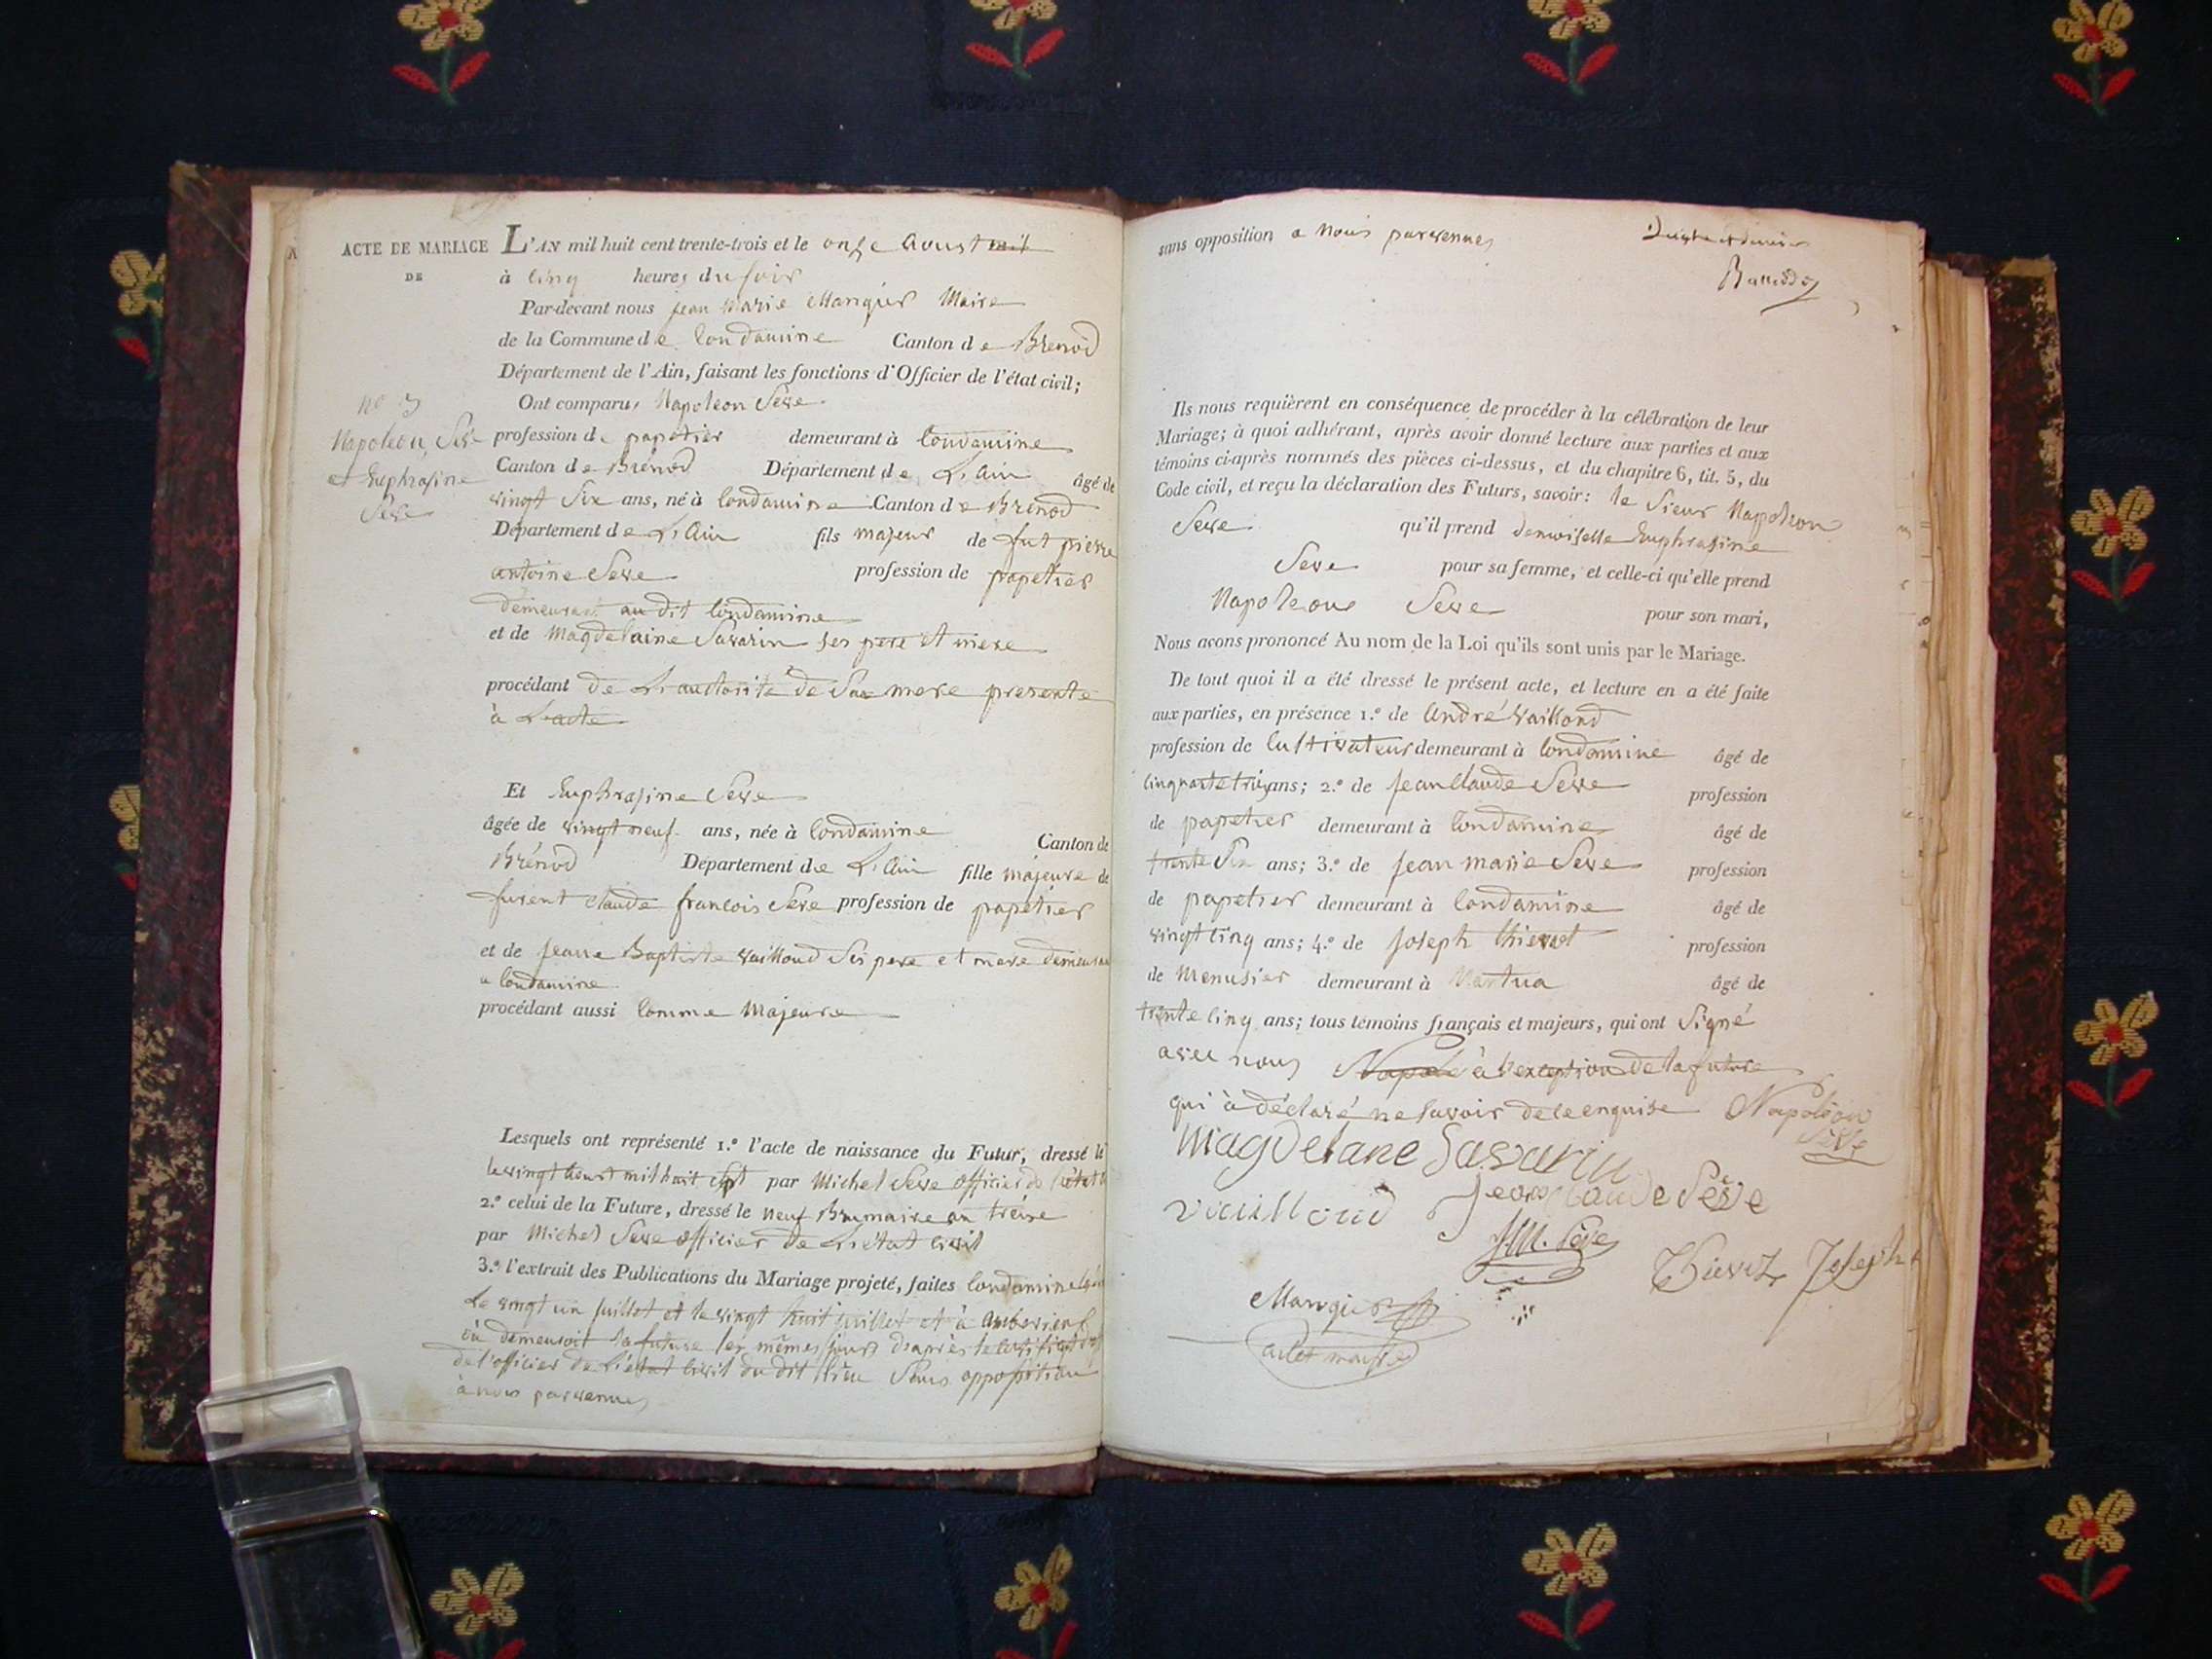 ACTE DE MARIAGE
DE
no 3
Napoleon Seve
et Euphrasine
Seve
L'AN mil huit cent trente-trois et le onze Aoust mil
à cinq heures du soir
Par-devant nous jean Marie Mangier Maire
de la Commune de Condamine Canton de Brenod
Département de l'Ain, faisant les fonctions d'Officier de l'état civil;
Ont comparu, Napoleon Seve
profession de papetier demeurant à Condamine
Canton de Brénod Département de L'Ain âgé de
vingt six ans, né à Condamine Canton de Brenod
Département de L'Ain fils majeur de fut pierre
antoine Seve profession de papetier
demeurant au dit Condamine
et de Magdelaine Savarin ses pere et mere
procédant de L'auctorité de Sa mere presente
à L'acte
Et Euphrasine Seve
âgée de vingt neuf ans, née à Condamine Canton de
Brénod Département de L'Ain fille majeure de
furent claude francois Seve profession de papetier
et de jeane Baptiste vailloud Ses pere et mere
a Condamine
procédant aussi Comme Majeure
Lesquels ont représenté 1.º l'acte de naissance du Futur, dressé le
le vingt Aoust mil huit sept par Michel Seve officier de
2.º celui de la Future, dressé le neuf Brumaire an treize
par Michel Seve officier de L'état civil
3.º l'extrait des Publications du Mariage projeté, faites Condamine
Le vingt un juillet et le vingt huit juillet et à
où demeuroit la future les mêmes jours d'après le certificat
de l'officier de L'état civil du dit lieu Sans opposition
à nous parvenues
sans opposition a nous parvenues
Ils nous requièrent en conséquence de procéder à la célébration de leur
Mariage; à quoi adhérant, après avoir donné lecture aux parties et aux
témoins ci-après nommés des pièces ci-dessus, et du chapitre 6, tit. 5, du
Code civil, et reçu la déclaration des Futurs, savoir: le Sieur Napoleon
Seve qu'il prend demoiselle Euphrasine
Seve pour sa femme, et celle-ci qu'elle prend
Napoleon Seve pour son mari,
Nous avons prononcé Au nom de la Loi qu'ils sont unis par le Mariage.
De tout quoi il a été dressé le présent acte, et lecture en a été faite
aux parties, en présence 1.º de André vailloud
profession de Cultivateur demeurant à Condamine âgé de
Cinquante trois ans; 2.º de jean Claude Seve profession
de papetier demeurant à Condamine âgé de
trente Six ans; 3.º de jean marie Seve profession
de papetier demeurant à Condamine âgé de
vingt cinq ans; 4.º de joseph profession
de Menusier demeurant à Nantua âgé de
trente cinq ans; tous témoins français et majeurs, qui ont Signé
avec nous à l'exception de la future
qui à déclaré ne savoir de ce enquise Napoléon
Sève
Magdelane Savarin
vauilloud jean claude Sève
J.M. Sève
Joseph
Mangier